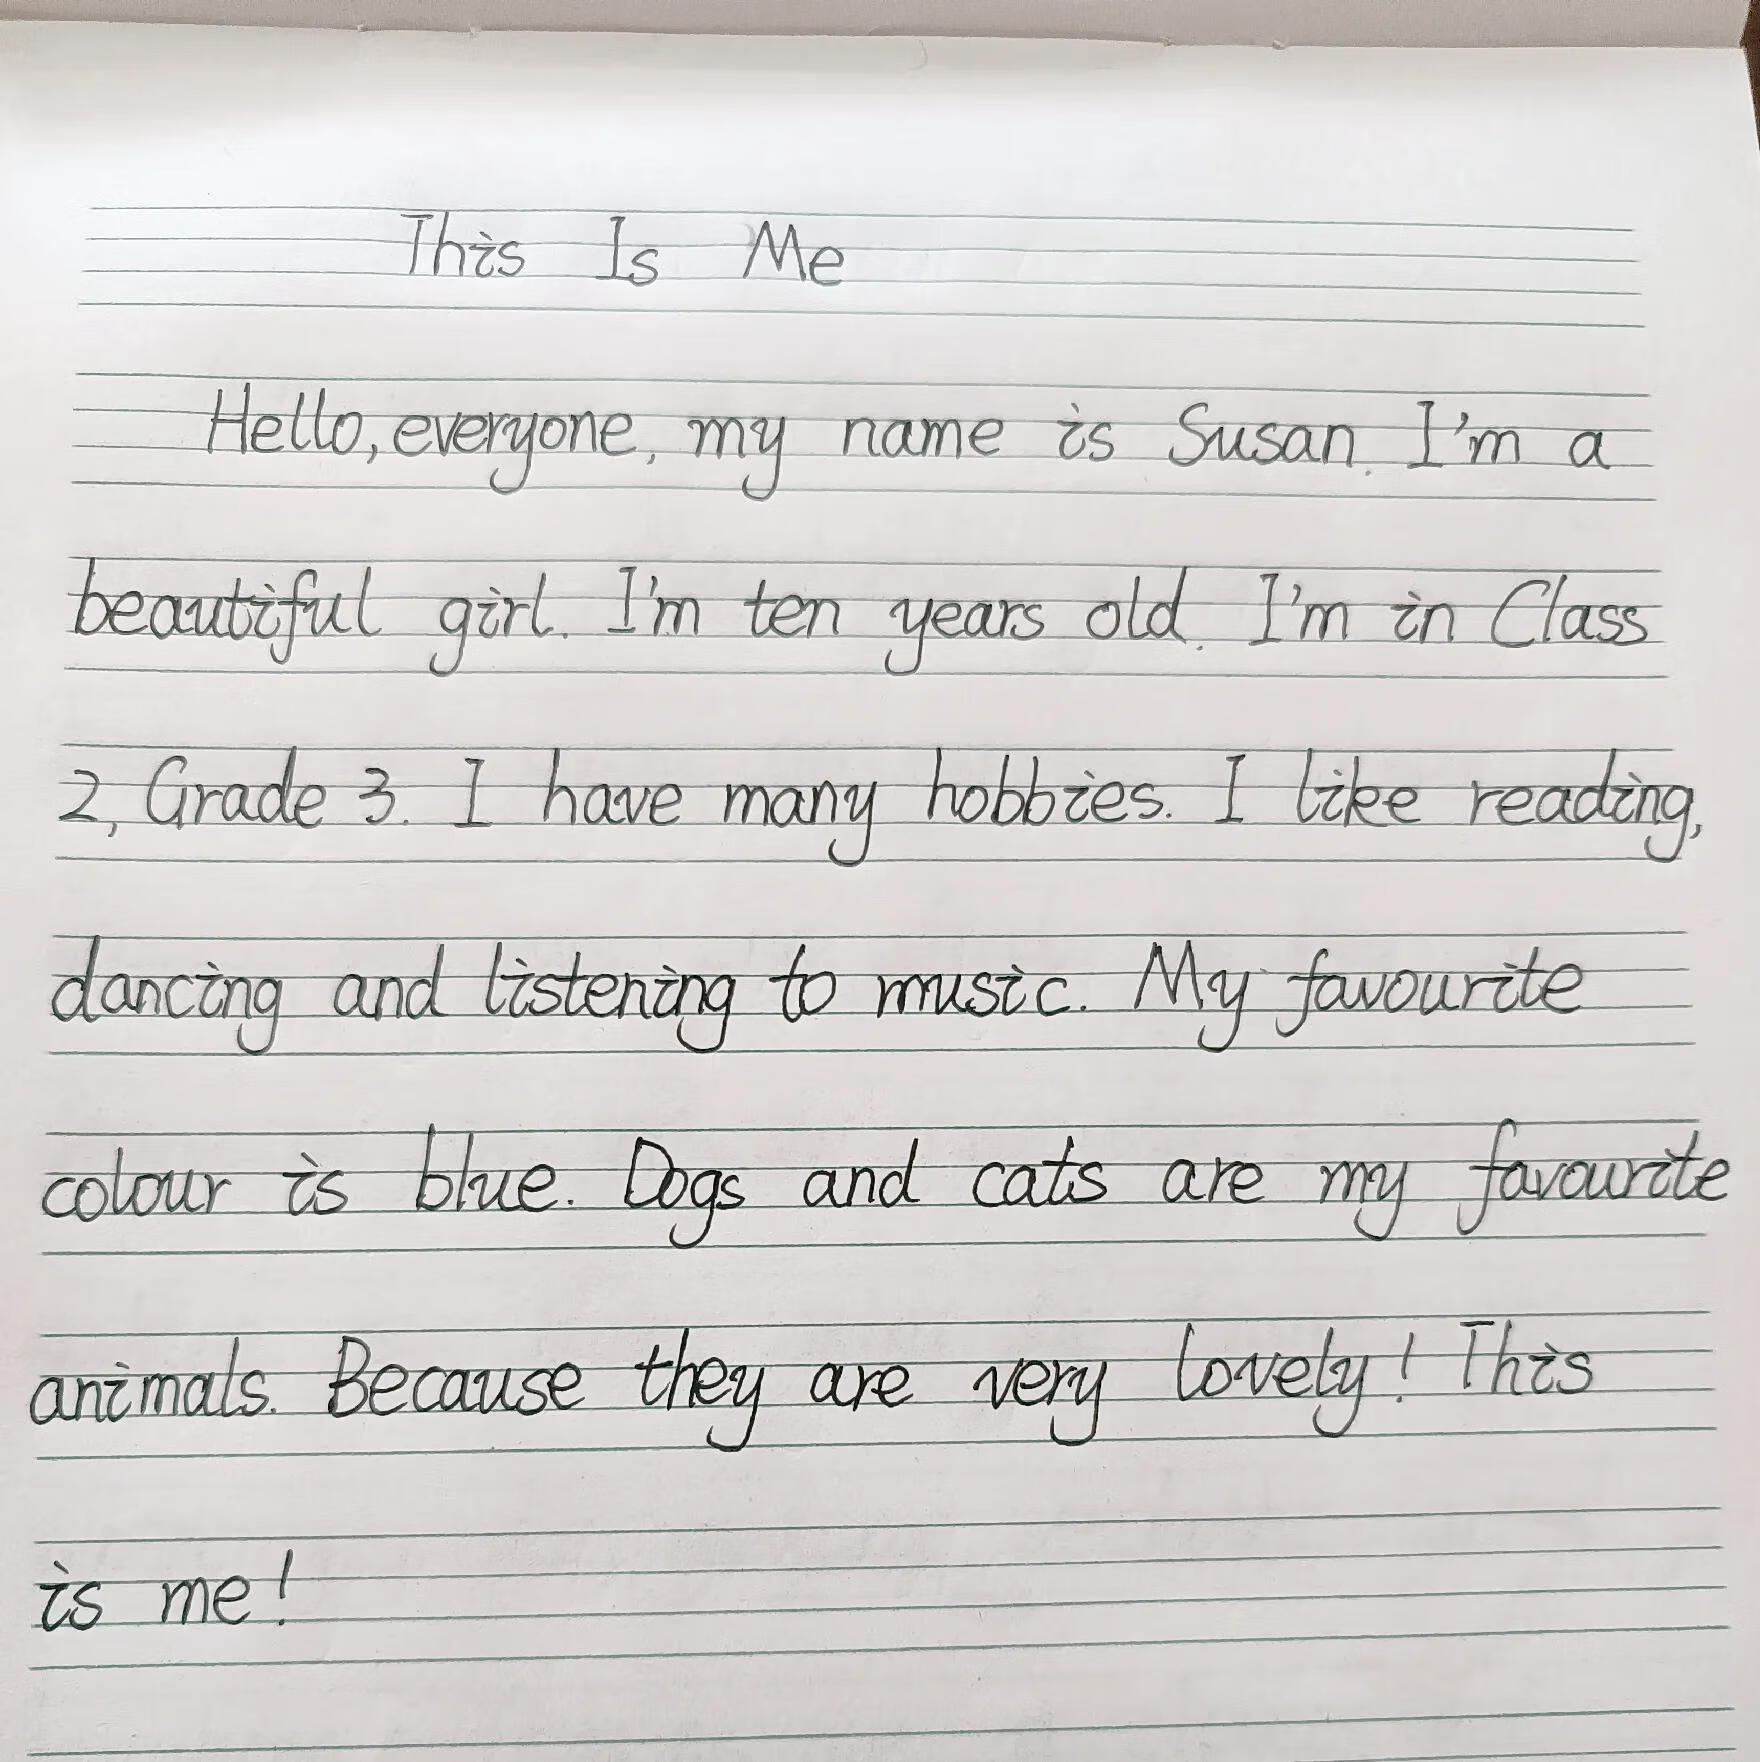 This Is Me
Hello, everyone, my name is Susan. I'm a
beautiful girl. I'm ten years old. I'm in Class
2, Grade 3. I have many hobbies. I like reading,
dancing and listening to music. My favourite
colour is blue. Dogs and cats are my favourite
animals. Because they are very lovely! This
is me!